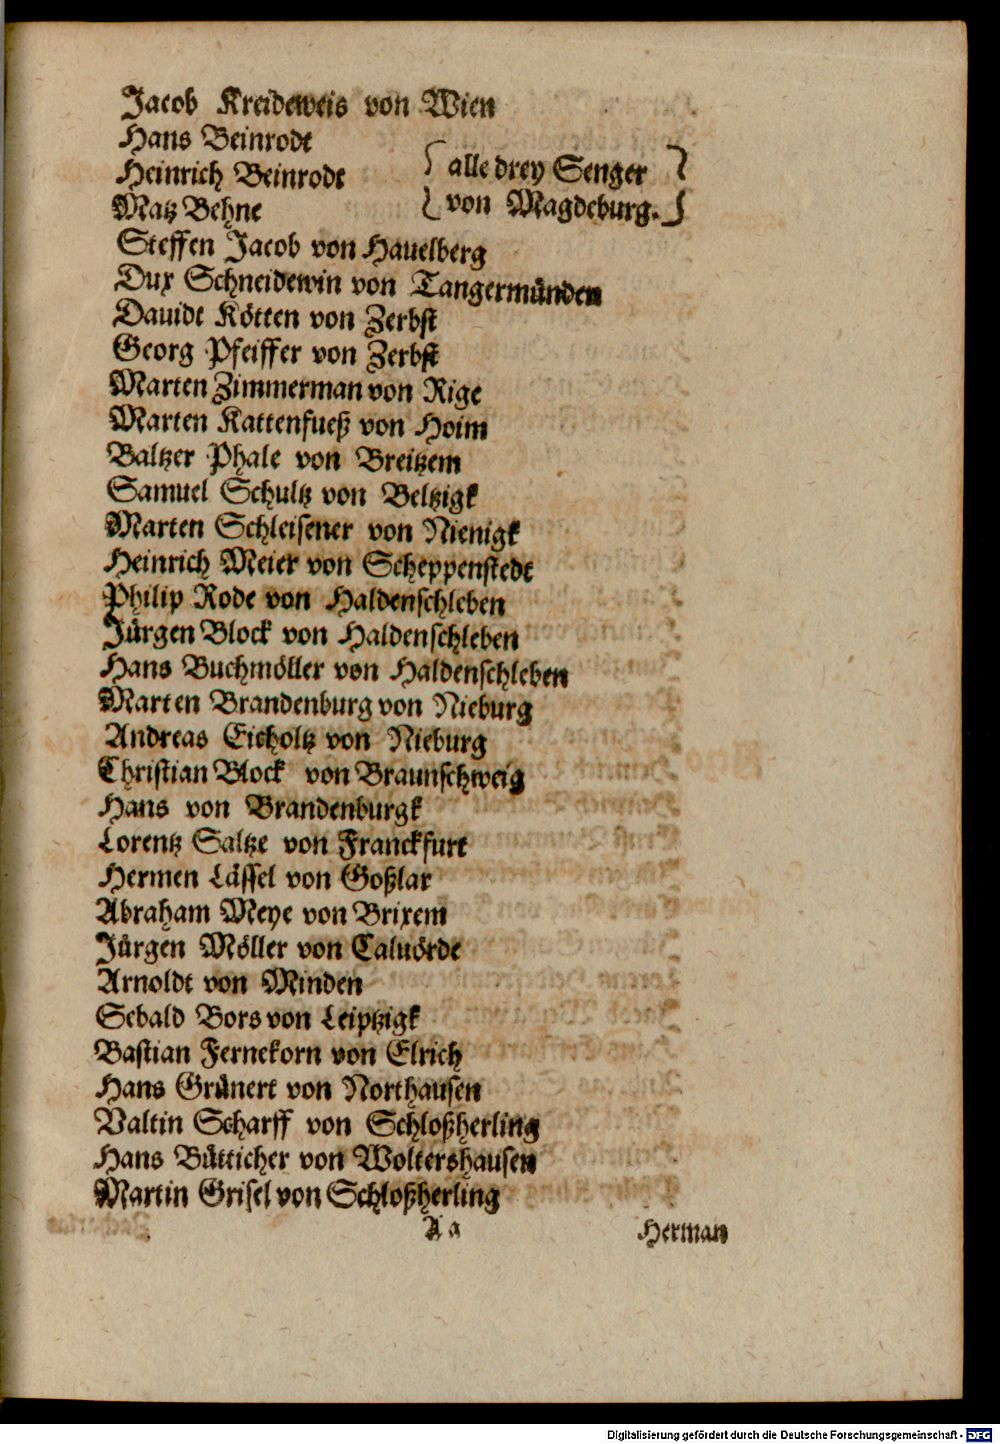 Jacob Kreideweis von Wien
Hans Beinrodt
Heinrich Beinrodt
Matz Behne
alle drey Senger
von Magdeburg.
Steffen Jacob von Hauelberg
Dux Schneidewin von Tangermünden
Dauidt Kötten von Zerbst
Georg Pfeiffer von Zerbst
Marten Zimmerman von Rige
Marten Kattenfueß von Hoim
Baltzer Phale von Breitzem
Samuel Schultz von Beltzigk
Marten Schleisener von Nienigk
Heinrich Meier von Scheppenstedt
Philip Rode von Haldenschleben
Jürgen Block von Haldenschleben
Hans Buchmöller von Haldenschleben
Marten Brandenburg von Nieburg
Andreas Eicholtz von Nieburg
Christian Block von Braunschweig
Hans von Brandenburgk
Lorentz Saltze von Franckfurt
Hermen Lässel von Goßlar
Abraham Meye von Brixem
Jürgen Möller von Caluörde
Arnoldt von Minden
Sebald Bors von Leiptzigk
Bastian Fernekorn von Elrich
Hans Grünert von Northausen
Valtin Scharff von Schloßherling
Hans Bütticher von Woltershausen
Martin Grisel von Schloßherling
Aa
Herman
Digitalisierung gefördert durch die Deutsche Forschungsgemeinschaft - DFG